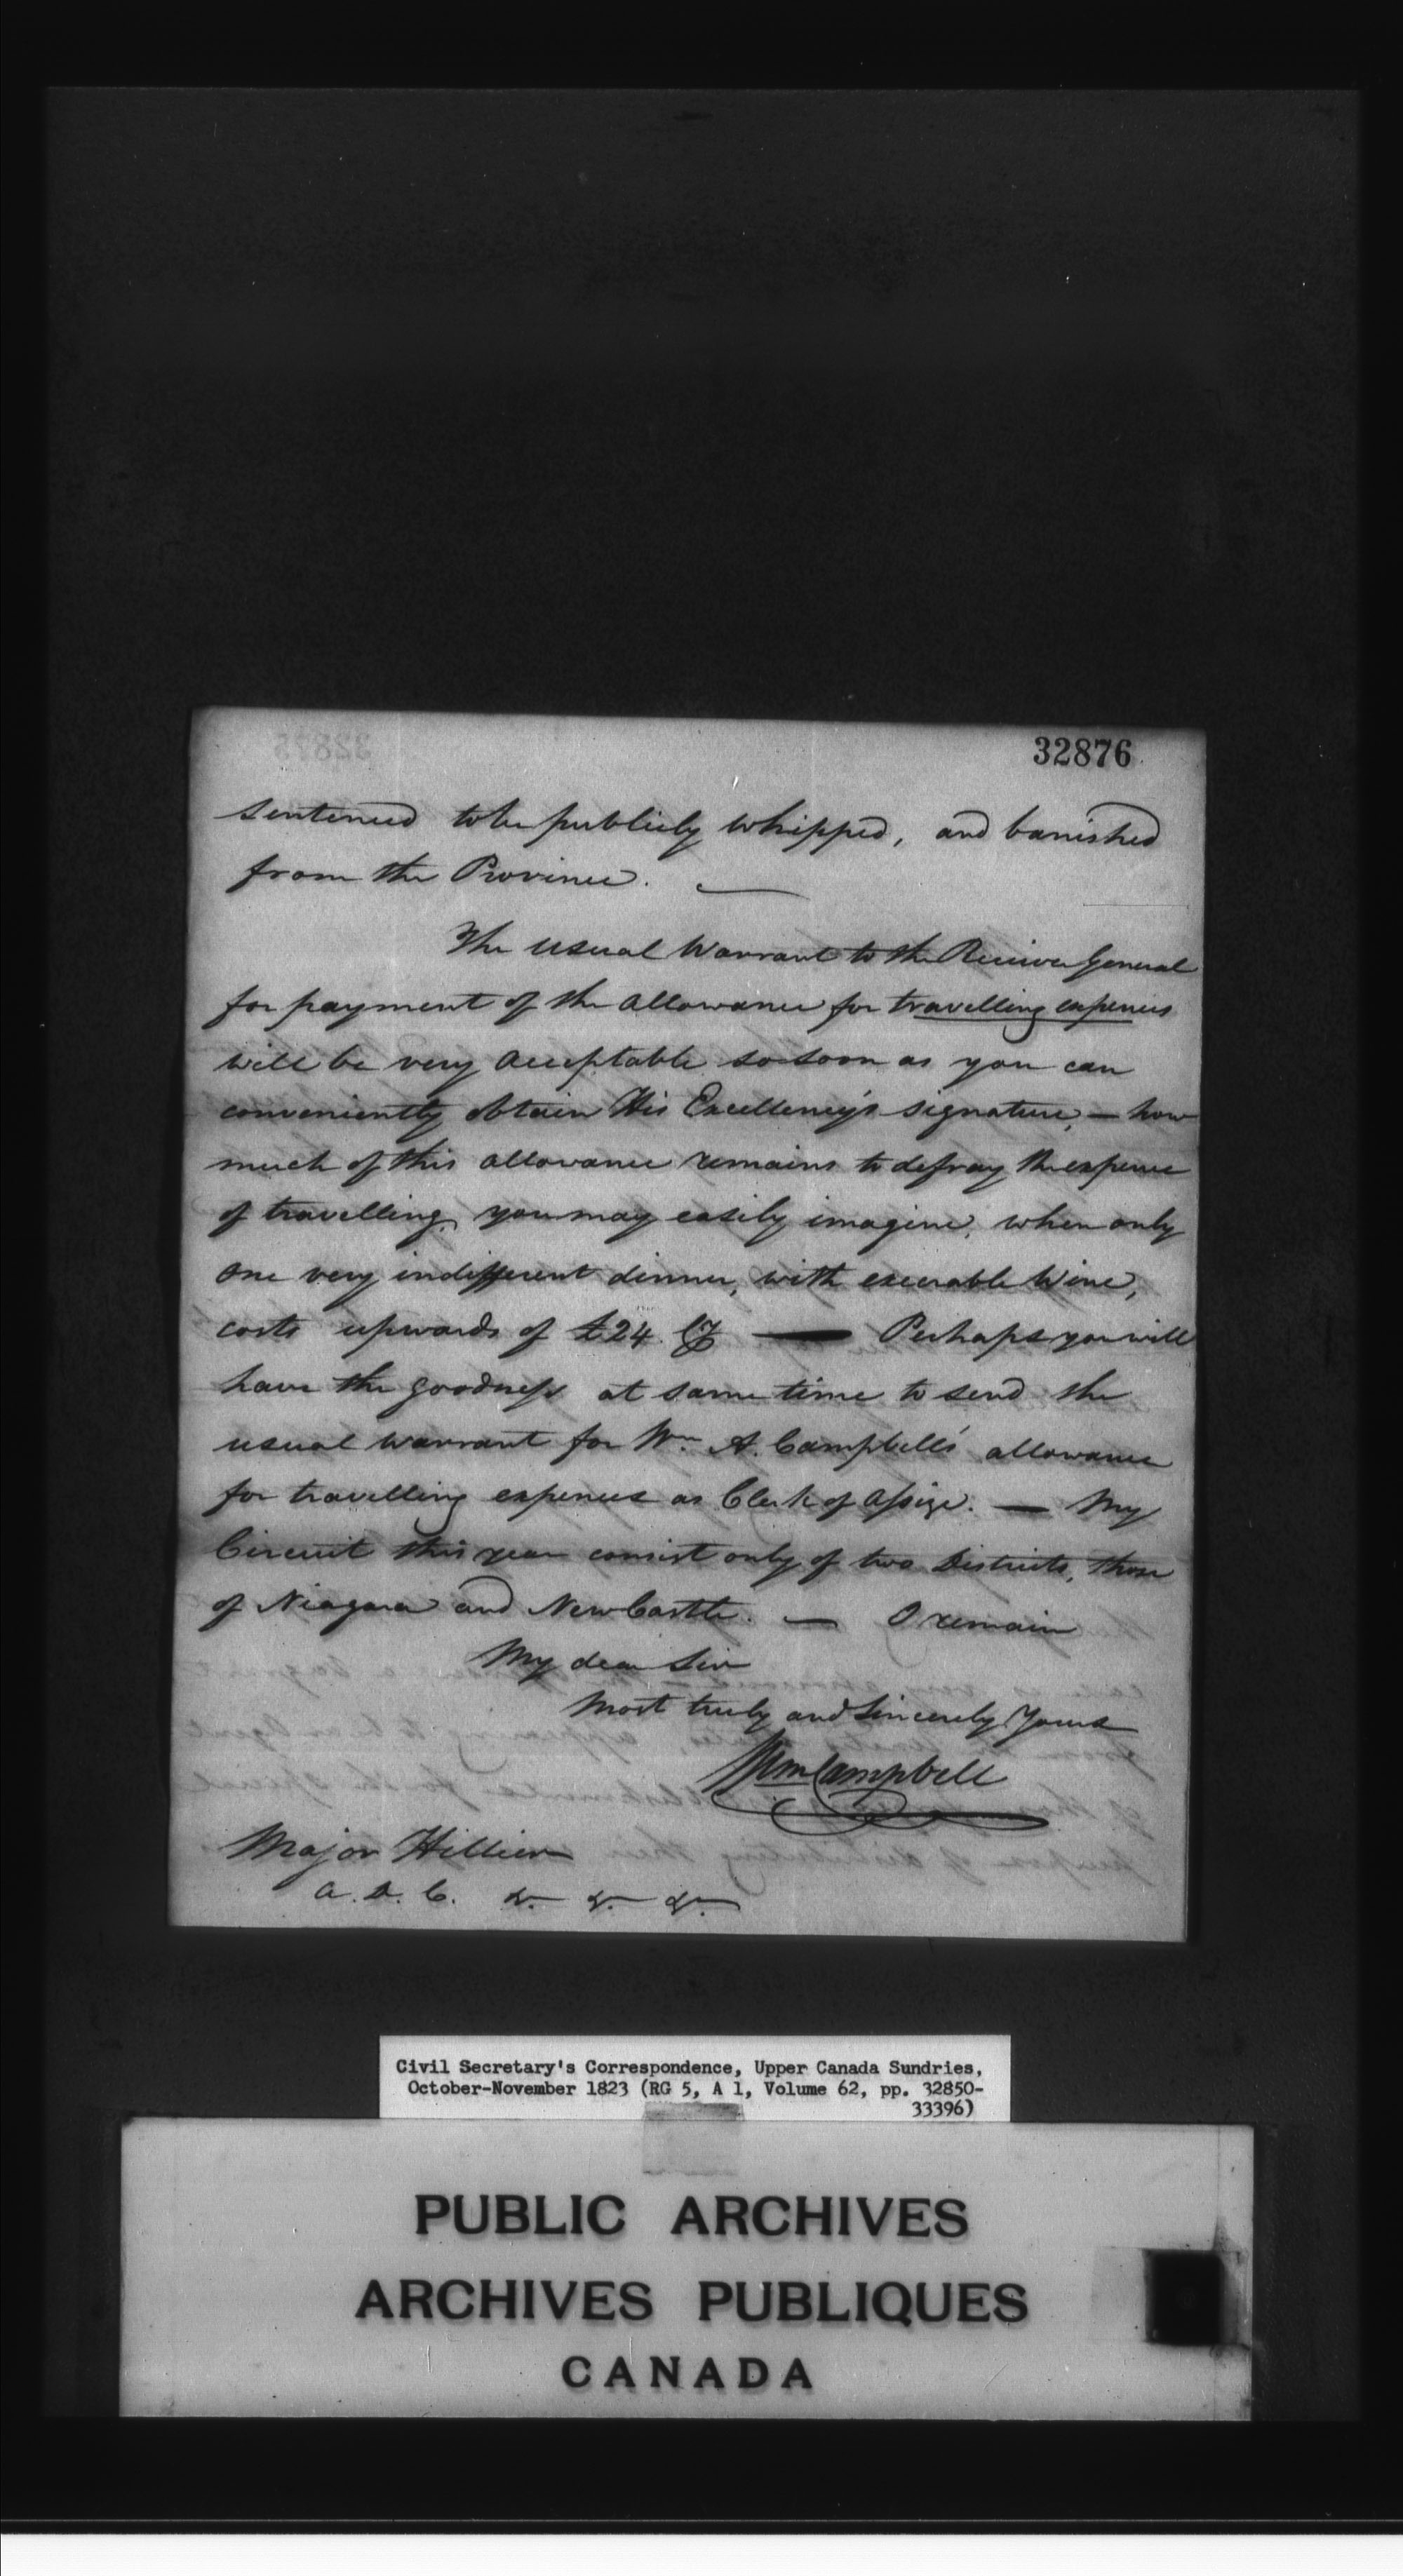 32876
sentenced to be publicly whipped, and banished
from the Province. —
The usual Warrant to the Receiver General
for payment of the allowance for travelling expences
will be very acceptable so soon as you can
conveniently obtain His Excellency's signature, — how
much of this allowance remains to defray the expence
of travelling, you may easily imagine, when only
one very indifferent dinner, with execrable Wine,
costs upwards of £24. Cy — Perhaps you will
have the goodness at same time to send the
usual warrant for Wm A. Campbell's allowance
for travelling expences as Clerk of Assize. — My
Circuit this year consist only of two Districts, those
of Niagara and NewCastle. — I remain
My dear Sir
Most truly and Sincerely Yours
Wm Campbell
Major Hillier
A. D. C. &. &. &.
Civil Secretary's Correspondence, Upper Canada Sundries,
October-November 1823 (RG 5, A 1, Volume 62, pp. 32850-
33396)
PUBLIC ARCHIVES
ARCHIVES PUBLIQUES
CANADA